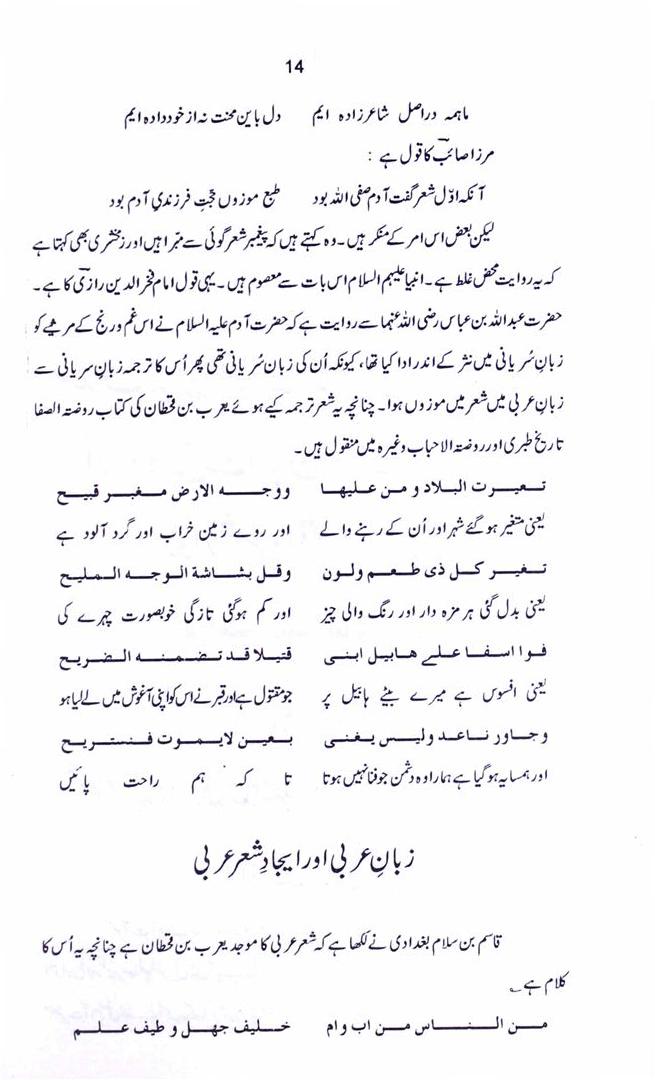 14
ماہمہ دراصل شاعرزادہ ایم دل باین محنت نہ از خود دادہ ایم
مرزا صائبؔ کا قول ہے :
آنکہ اوّل شعر گفت آدم صفی اللہ بود طبع موزوں حجتِ فرزندیِ آدم بود
لیکن بعض اس امر کے منکر ہیں۔ وہ کہتے ہیں کہ پیغمبر شعر گوئی سے مبّرا ہیں اور زمخشری بھی کہتا ہے
کہ یہ روایت محض غلط ہے۔ انبیا علیہم السلام اس بات سے معصوم ہیں۔ یہی قول امام فخر الدین رازیؒ کا ہے۔
حضرت عبداللہ بن عباس رضی اللہ عنہما سے روایت ہے کہ حضرت آدم علیہ السلام نے اس غم و رنج کے مرثیے کو
زبانِ سُریانی میں نثر کے اندر ادا کیا تھا، کیونکہ اُن کی زبان سُریانی تھی پھر اُس کا ترجمہ زبانِ سریانی سے
زبانِ عربی میں شعر میں موزوں ہوا۔ چنانچہ یہ شعر ترجمہ کیے ہوئے یعرب بن قحطان کی کتاب روضتہ الصفا
تاریخ طبری اور روضتہ الاحباب وغیرہ میں منقول ہیں۔
تعیرت البلاد و من علیھا ووجہ الارض مغبر قبیح
یعنی متغیر ہو گئے شہر اور اُن کے رہنے والے اور روے زمین خراب اور گرد آلود ہے
تغیر کل ذی طعم ولون وقل بشاشة الوجہ الملیح
یعنی بدل گئی ہر مزہ دار اور رنگ والی چیز اور کم ہوگئی تازگی خوبصورت چہرے کی
فوا اسفا علے ھابیل ابنی قتیلا قد تضمنہ الضریح
یعنی افسوس ہے میرے بیٹے ہابیل پر جو مقتول ہے اور قبر نے اس کو اپنی آغوش میں لے لیا ہو
وجاور ناعد ولیس یغنی بعین لایموت فنستریح
اور ہمسایہ ہو گیا ہے ہمارا وہ دشمن جو فنا نہیں ہوتا تا کہ ہم راحت پائیں
زبانِ عربی اور ایجادِ شعر عربی
قاسم بن سلام بغدادی نے لکھا ہے کہ شعر عربی کا موجد یعرب بن قحطان ہے چنانچہ یہ اُس کا
کلام ہے۔
من الناس من اب وام خلیف جھل و طیف علم